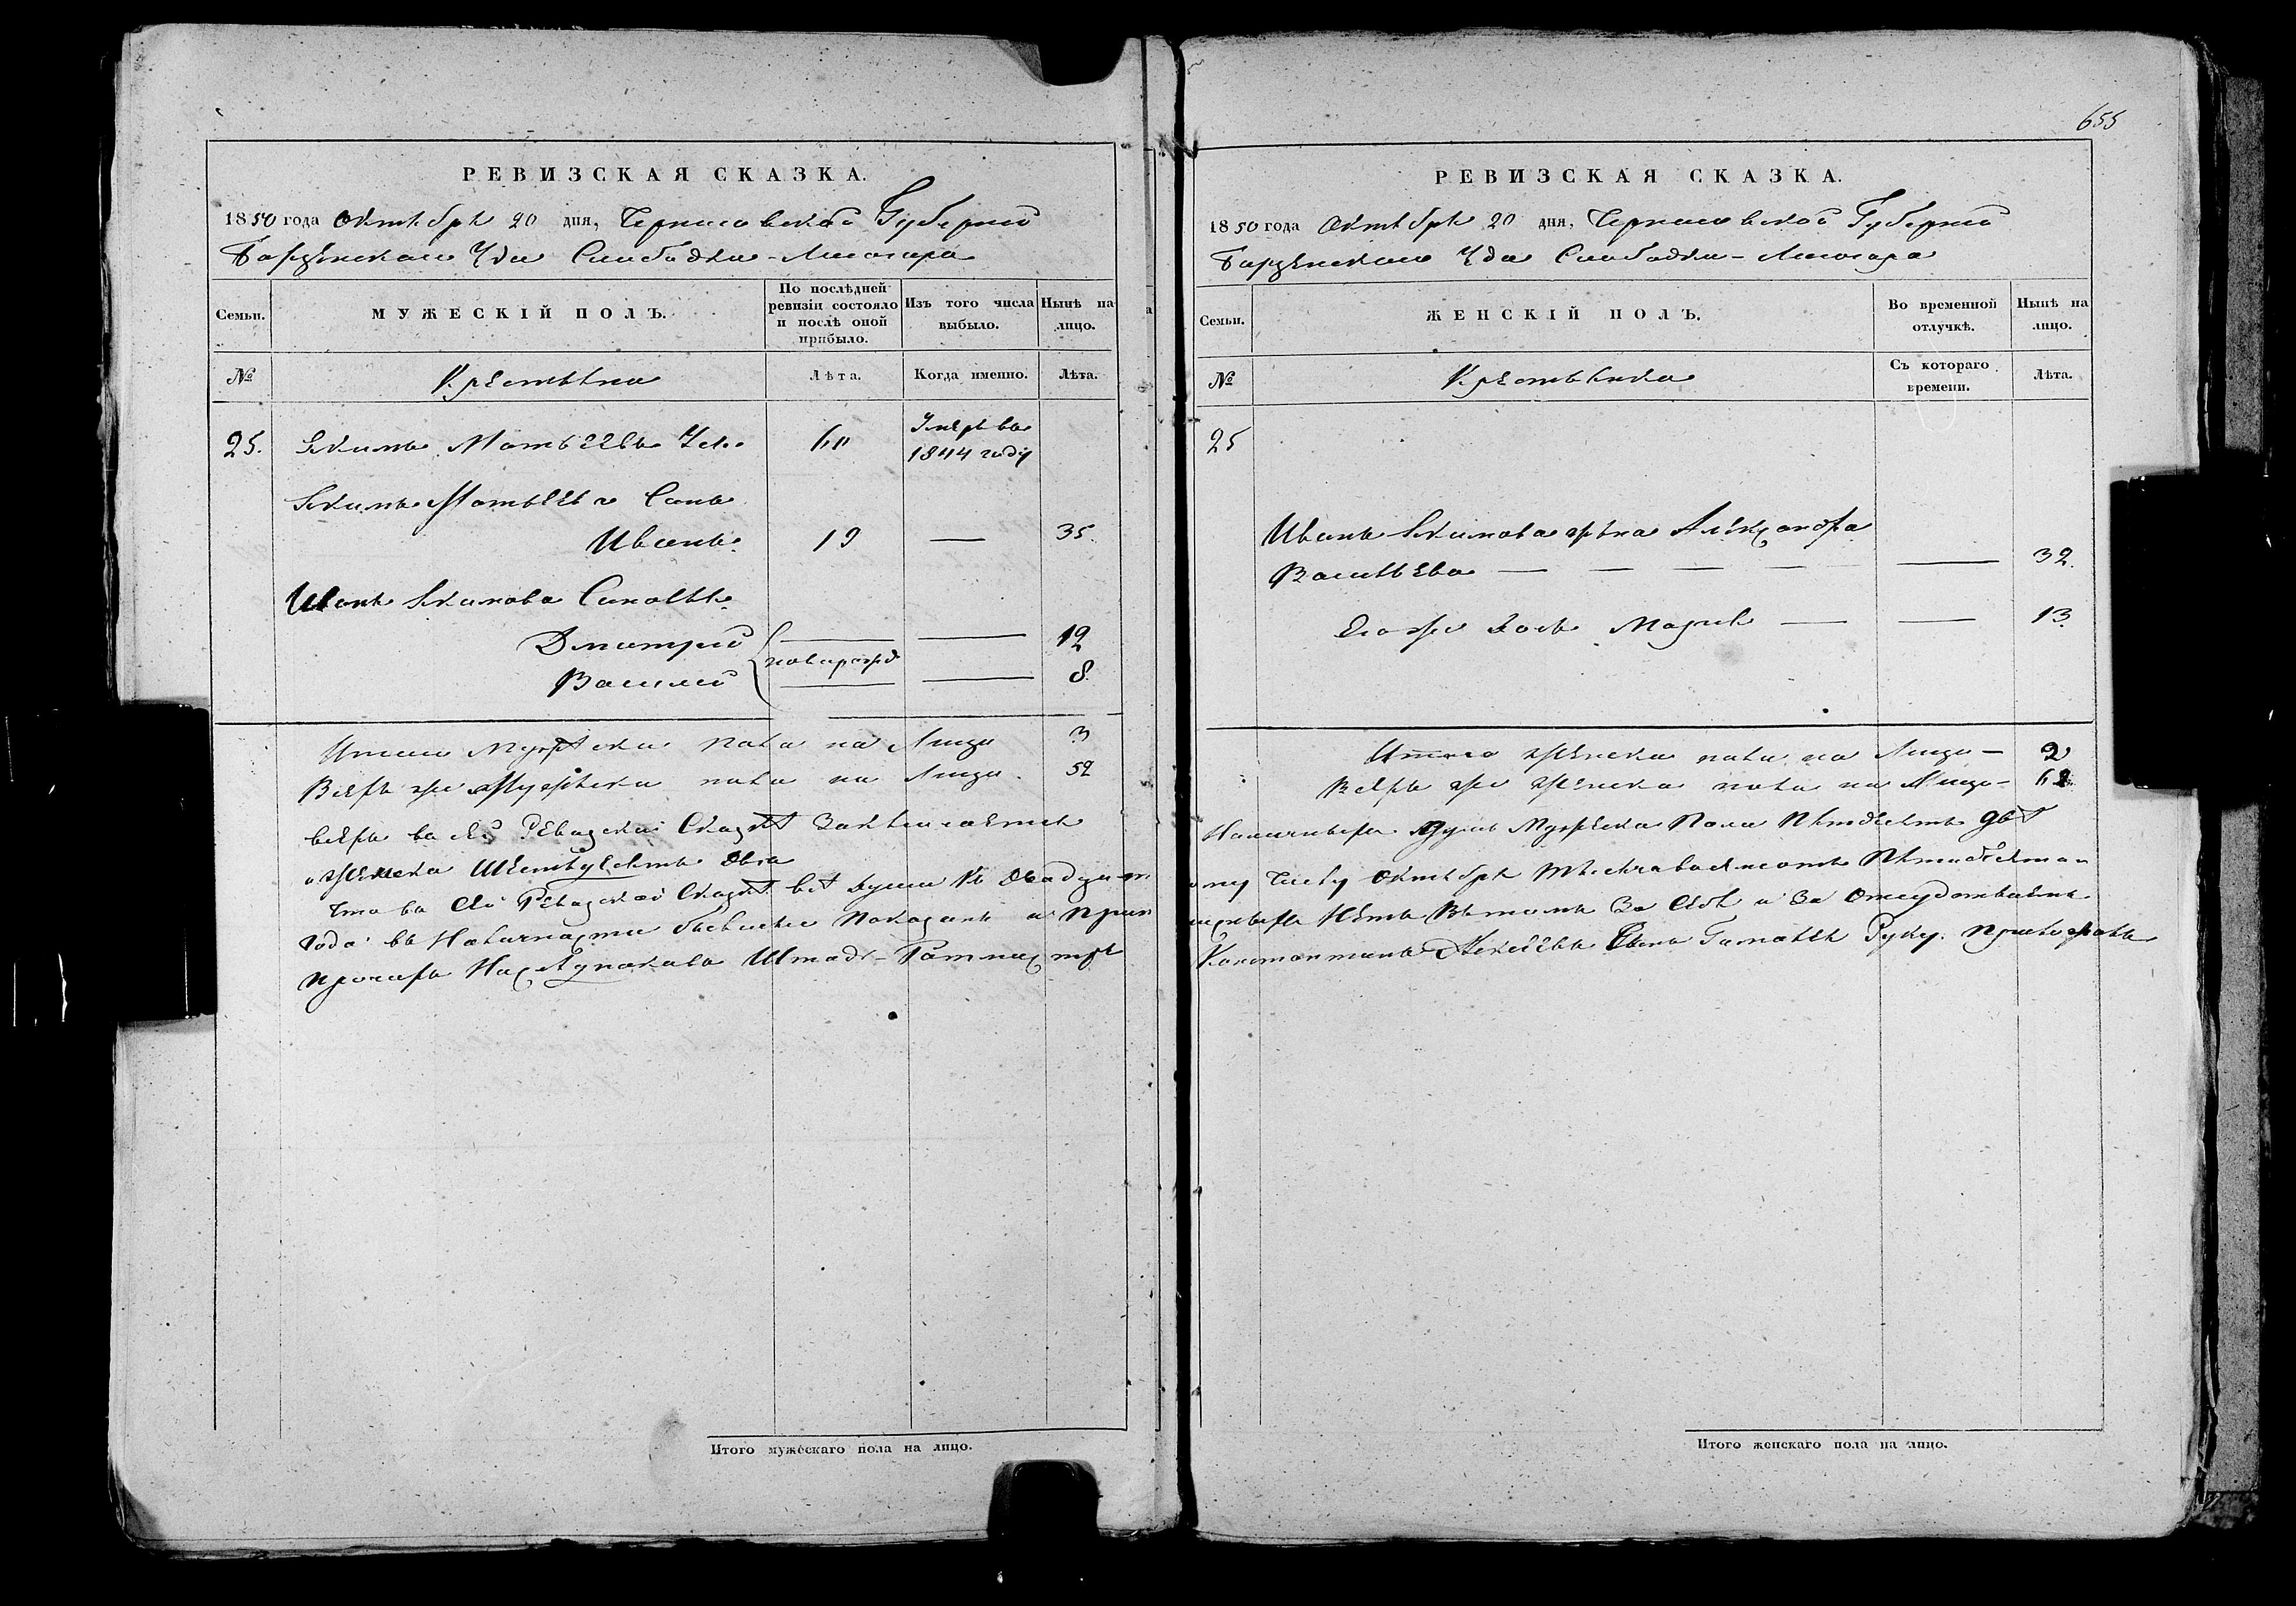 РЕВИЗСКАЯ СКАЗКА.
1850 года Октября 20 дня, Черниговской Губерніи
Борзенскаго Уезда Слободки-Лисогора
Семьи.
МУЖЕСКІЙ ПОЛЪ.
По послѣдней ревизіи состояло и послѣ оной прибыло.
Изъ того числа выбыло.
Нынѣ на лицо.
№
Крестьяне
Лѣта.
Когда именно.
Лѣта.
25. Якимъ Матвеевъ 60 Умеръ въ 1844 году
Якима Матвеева Сынъ
Иванъ. 19 — 35.
Ивана Якимова Сыновья
Дмитрій — — 12
новорожд
Василій — — 8.
Итого Мужеска пола на Лицо 3
Всехъ же Мужеска пола на Лицо. 52
всехъ въ сей Ревизской Сказкѣ Заключается
и женска Шестьдесятъ два
Что въ сей Ревизской Сказкѣ всѣ души къ двадцат
года въ Наличности бывшіе Показаны и проп
прочихъ Штабъ-Ротмистръ
655
РЕВИЗСКАЯ СКАЗКА.
1850 года Октября 20 дня, Черниговской Губерніи
Борзенскаго Уда Слободки-Лисогора
Семьи.
ЖЕНСКІЙ ПОЛЪ.
Во временной отлучкѣ.
Нынѣ на лицо.
№
Крестьянки
Съ котораго времени.
Лѣта.
25
Ивана Якимова жена Александра
Васильева — — — — — 32.
Его же дочь Марія — — 13.
Итого женска пола на Лицо — 2
Всехъ же женска пола на Лицо — 62
Наличныхъ душъ Мужеска Пола Пятдесятъ двѣ
ому Числу Октября Мѣсяца Пятидесятаго
нѣтъ Въ томъ За себя и За отсудствіемъ
Константинъ Алексеевъ Сынъ Руку приложилъ
Итого мужескаго пола на лицо.
Итого женскаго пола на лицо.